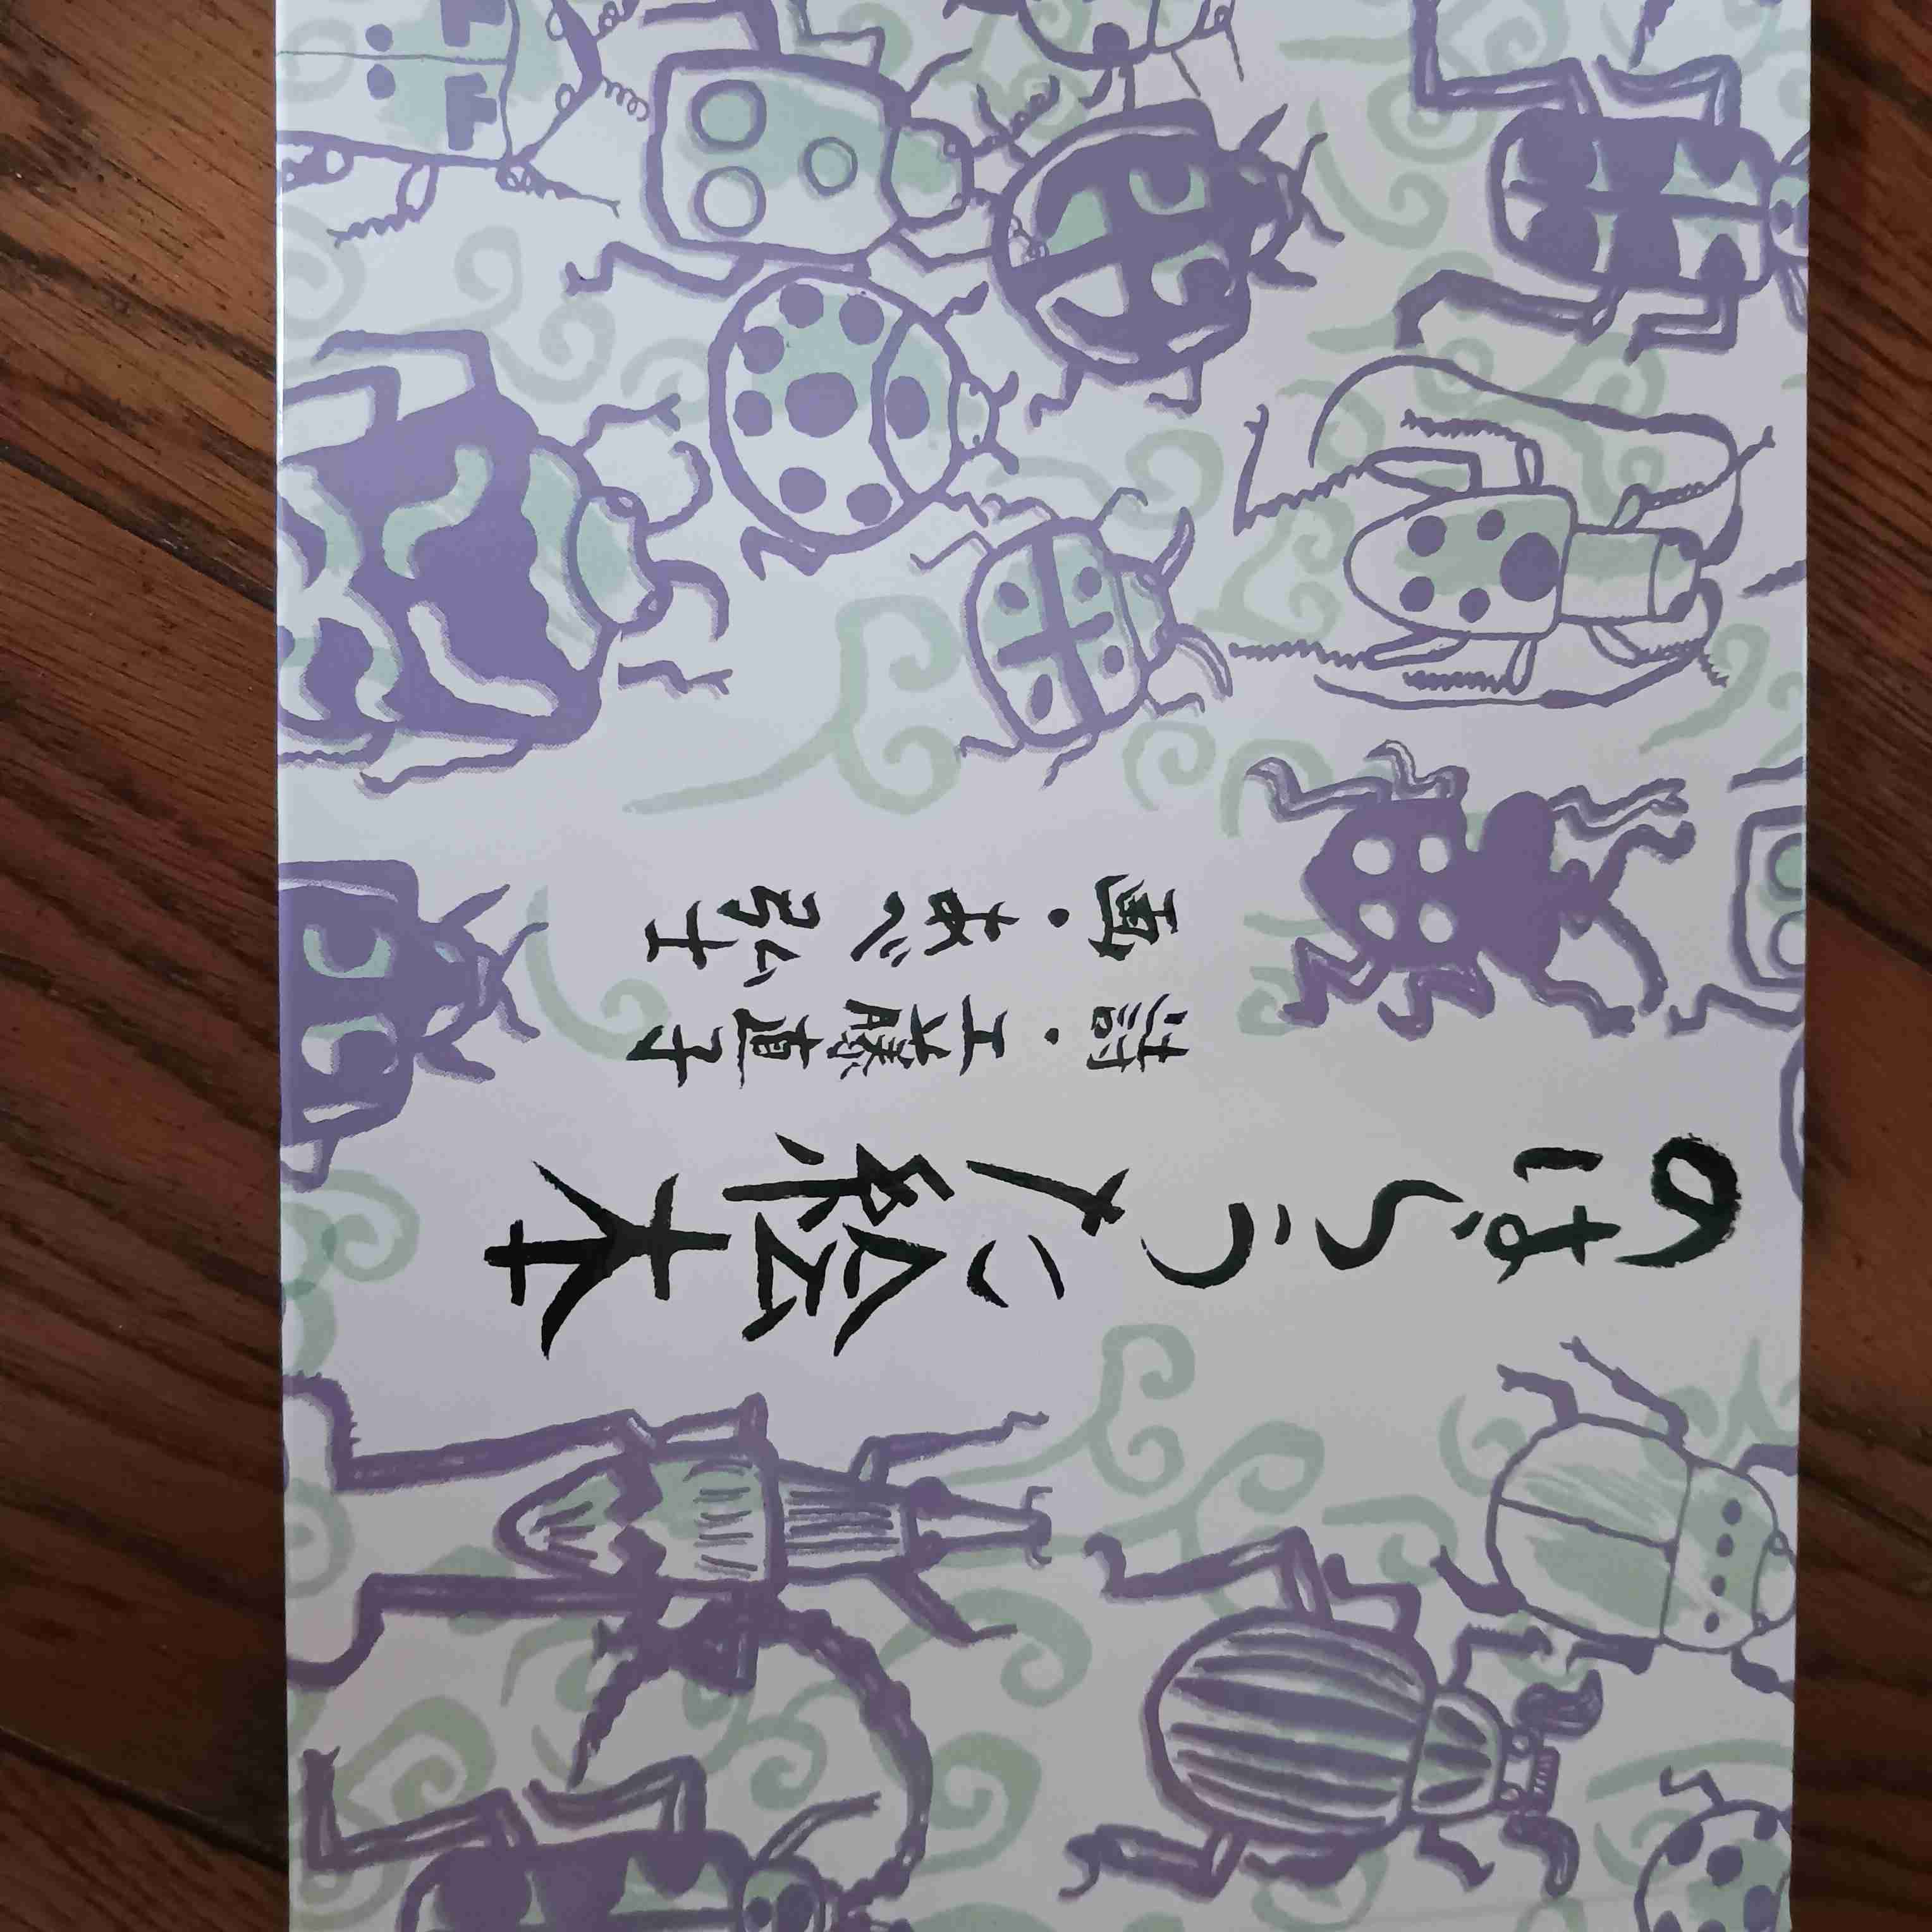 のはらうた絵本
詩・工藤直子
画・あべ弘士